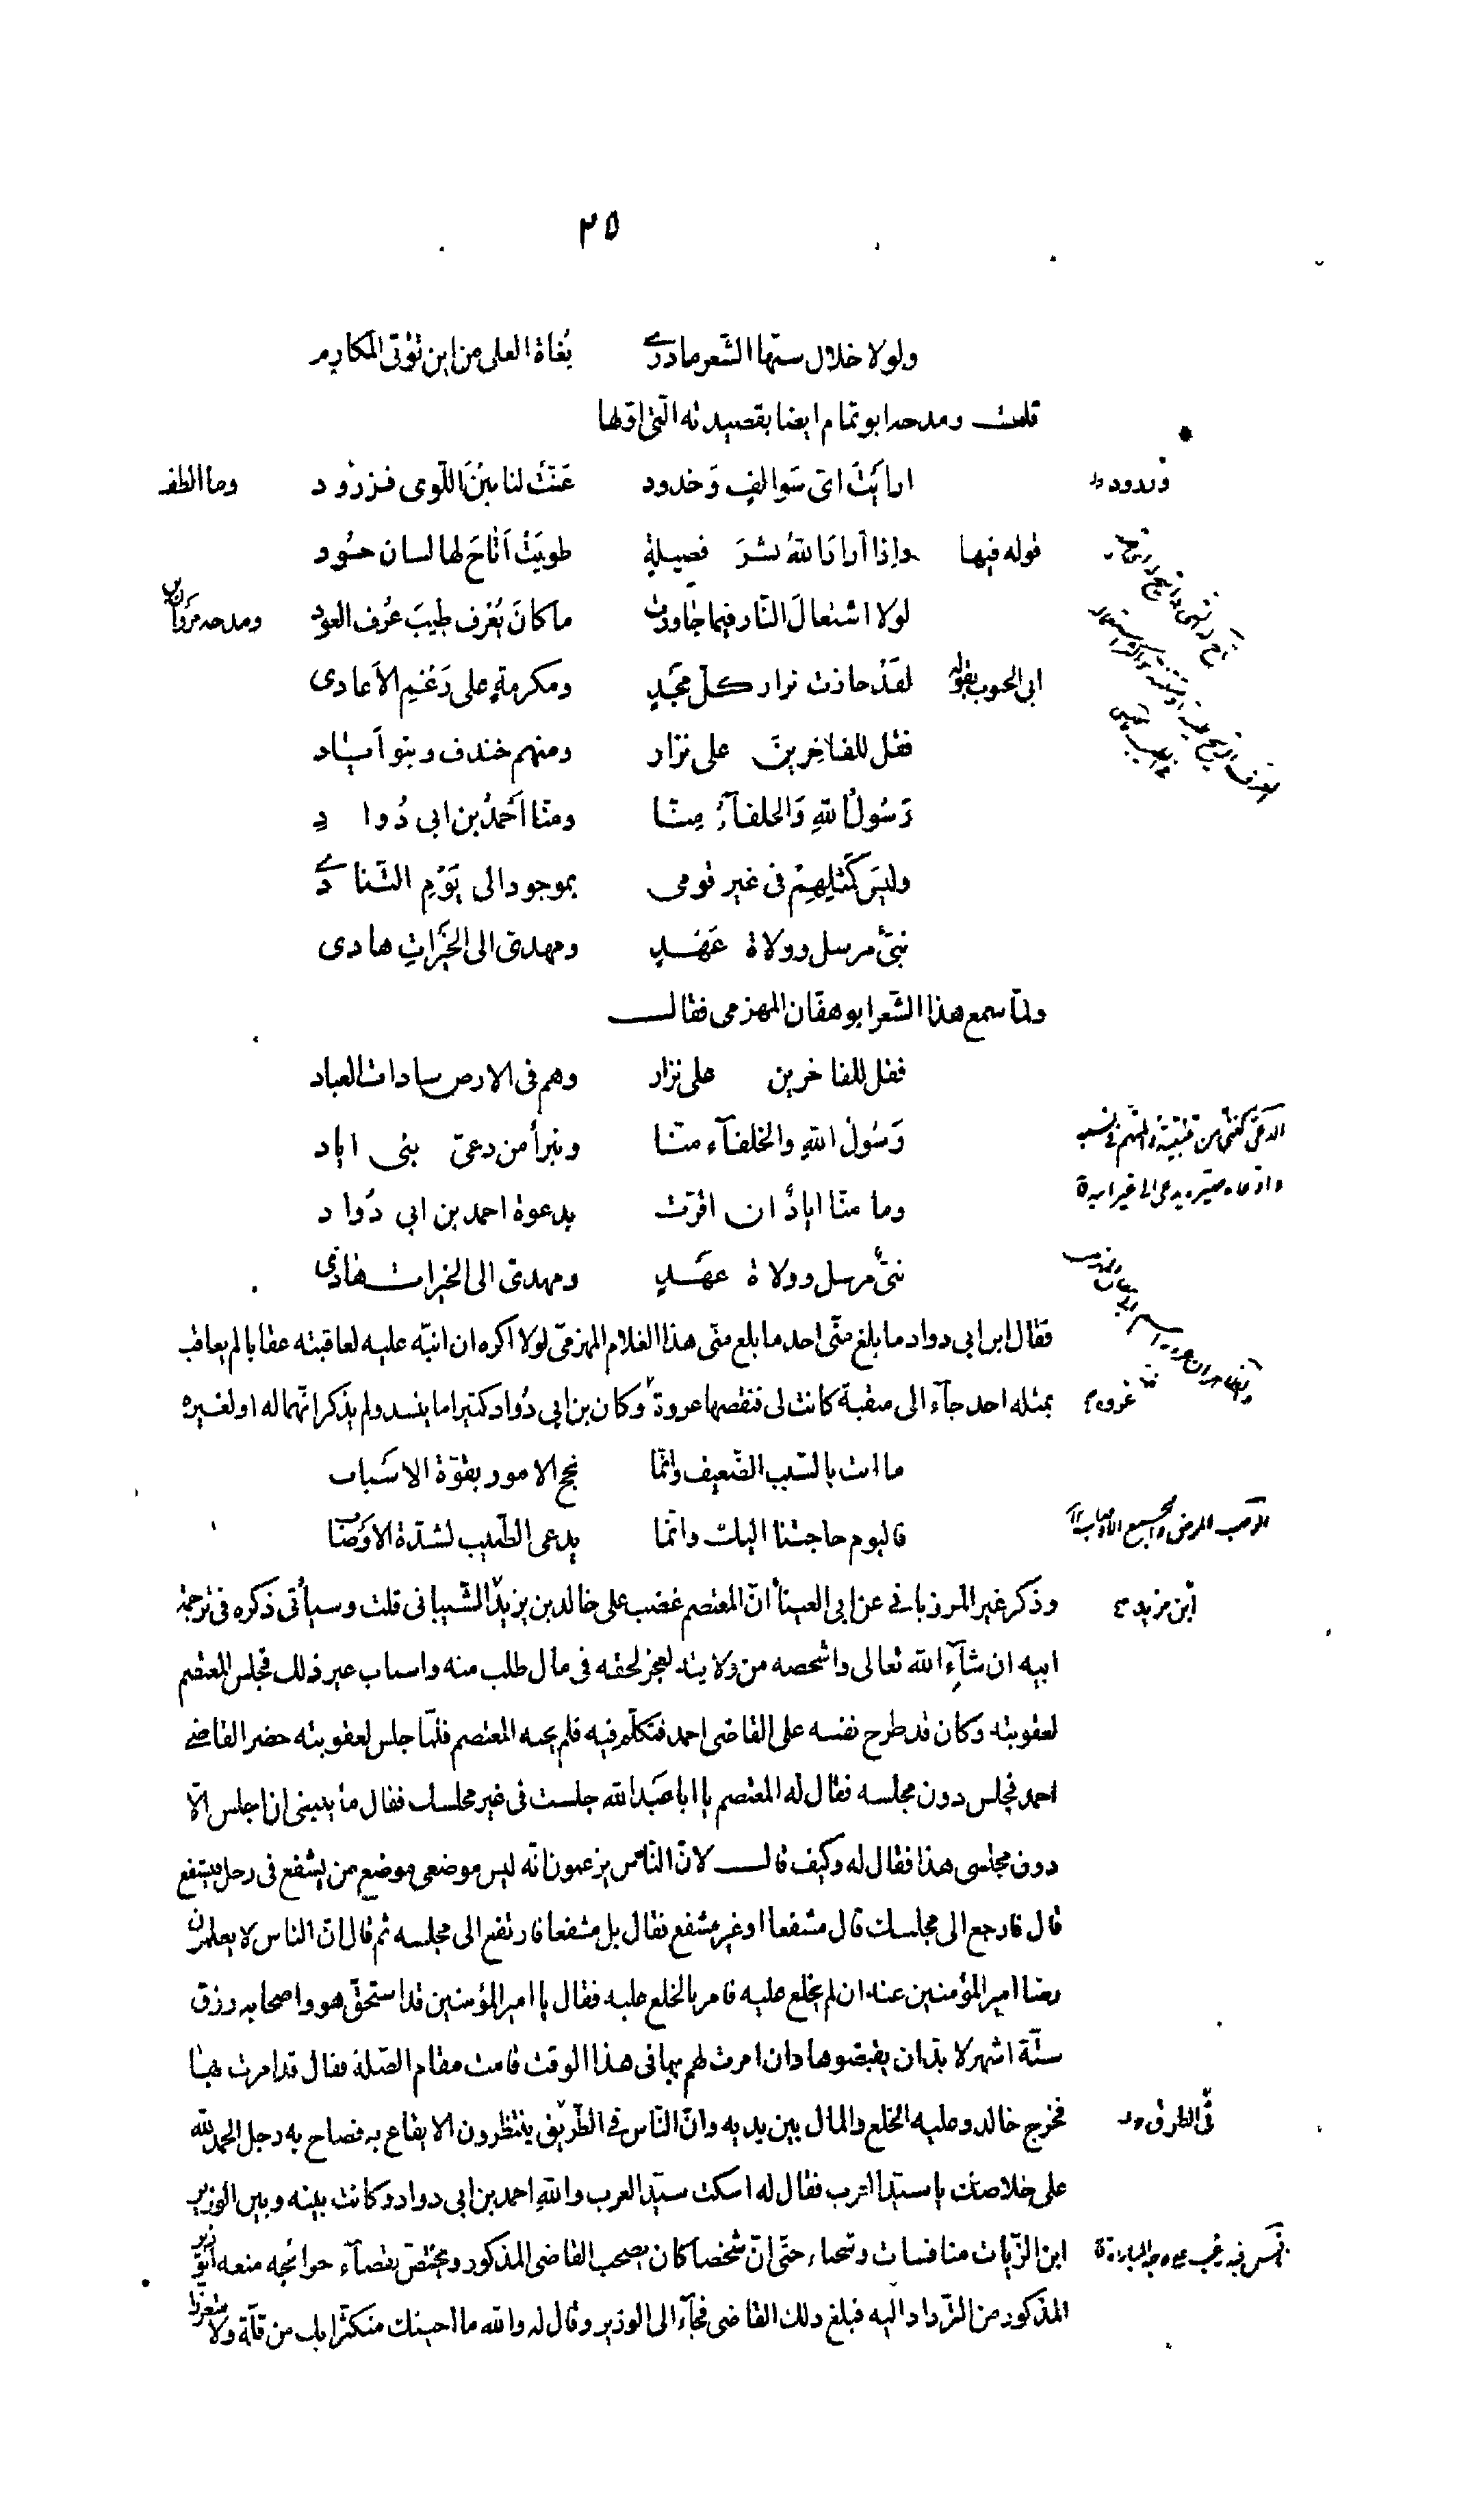 ٢٥
ولولا خلال سنّها الشّعر مادرى بُغاة العلى من اين تؤتى المكارم
قلت ومدحه ابو تمّام ايضا بقصيدته الّتى اوّلها
ارايَتَ اىّ سَوالفٍ وَخدود عَنَّتْ لنا بيْنَ اللّوى فزرُود وما الطف
وزرود
قوله فيها واذا ارادَ اللّٰهُ نشرَ فضيلةٍ طويَتْ اَتاحَ لها لسان حسُود
لولا اشتعالَ النّار فيما جاورت ما كانَ يُعْرف طيبَ عُرف العود ومدحه مروان بن
ابى الجنوب بقوله لقدْ حازت نزار كلّ مجْدٍ ومكرمةٍ على رَغْمِ الاَعادى
فقل للفاخِرينَ على نزار ومنهم خندف وبنو اَياد
رَسُولُ اللّٰهِ وَالخلفآءُ مِنّا ومنّا اَحْمدُ بن ابى دُوادِ
وليَس كمَثلِهِمْ فى غير قومى بموجود الى يَوْمِ التّنادى
نبىٌّ مرسل وولاة عَهْدٍ ومهدىّ الى الخَيْراتِ هادى
ولمّا سمع هذا الشّعر ابو هفّان المهزمى فقال
فقل للفاخرين على نزار وهم فى الارض سادات العباد
رَسُولُ اللّٰهِ والخلفآء منّا ونبرأ من دعىّ بنى اياد
وما منّا ايادٌ ان اقرّت بدعوة احمد بن ابى دُواد
نبىٌّ مرسل وولاة عهَدٍ ومهدىّ الى الخيرات هاذى
فقال ابن ابى دواد ما بلغ منّى احد ما بلغ منّى هذا الغلام المهزمىّ لولا اكره ان انبّه عليه لعاقبته عقابا لم يعاقب
بمثله احد جآء الى منقبة كانت لى فنقضها عروة وكان بن ابى دُواد كثيراما ينشد ولم يذكر انّهما له او لغيره
عروة
ما انت بالسّبب الضّعيف وانّما نجح الامور بقوّة الاسَباب
فاليوم حاجتنا اليك وانّما يدعى الطّبيب لشدّة الاوَصاب
الوصب المرض والجمع الاوصاب
وذكر غير المرزبانى عن ابى العيناء انّ المعتصم غضب على خالد بن يزيد الشّيبانى قلت وسيأتى ذكره فى ترجمة
ابن مزيد
ابيه ان شآء اللّٰه تعالى واشخصه من ولايته لعجز لحقه فى مال طلب منه واسباب غير ذلك فجلس المعتصم
لعقوبته وكان قد طرح نفسه على القاضى احمد فتكلّم فيه فلم يجبه المعتصم فلمّا جلس لعقوبته حضر القاضى
احمد فجلس دون مجلسه فقال له المعتصم يا ابا عبَد اللّٰه جلست فى غير مجلسك فقال ما ينبغى ان اجلس الّا
دون مجلسى هذا فقال له وكيف قال لانّ النّاس يزعمون انه ليس موضعى موضع من يشفع فى رجل فيشفع
قال فارجع الى مجلسك قال مشفعا او غير مشفع فقال بل مشفعا فارتفع الى مجلسه ثم قال انّ الناس لا يعلمون
رضا امير المؤمنين عنه ان لم يخلع عليه فامر بالخلع عليه فقال يا امير المؤمنين قد استحقّ هو واصحابه رزق
ستّة اشهر لا بدّ ان يقبضوها وان امرت لهم بها فى هذا الوقت قامت مقام الصّلة فقال قد امرت بها
فخرج خالد وعليه الخلع والمال بين يديه وانّ النّاس فى الطّريق ينتظرون الايقاع به فصاح به رجل الحمد للّٰه
فى الطرق
على خلاصك يا سيّد العرب فقال له اسكت سيّد العرب واللّٰهِ احمد بن ابى دواد وكانت بينه وبين الوزير
ابن الزّيات منافسات وشحناء حتّى انّ شخصا كان يصحب القاضى المذكور ويختصّ بقضآء حوائجه منعه الوزير
المذكور من التّرداد اليه فبلغ ذلك القاضى فجآء الى الوزير وقال له واللّٰه ما اجيئك متكثّرا بك من قلّة ولا متعززا